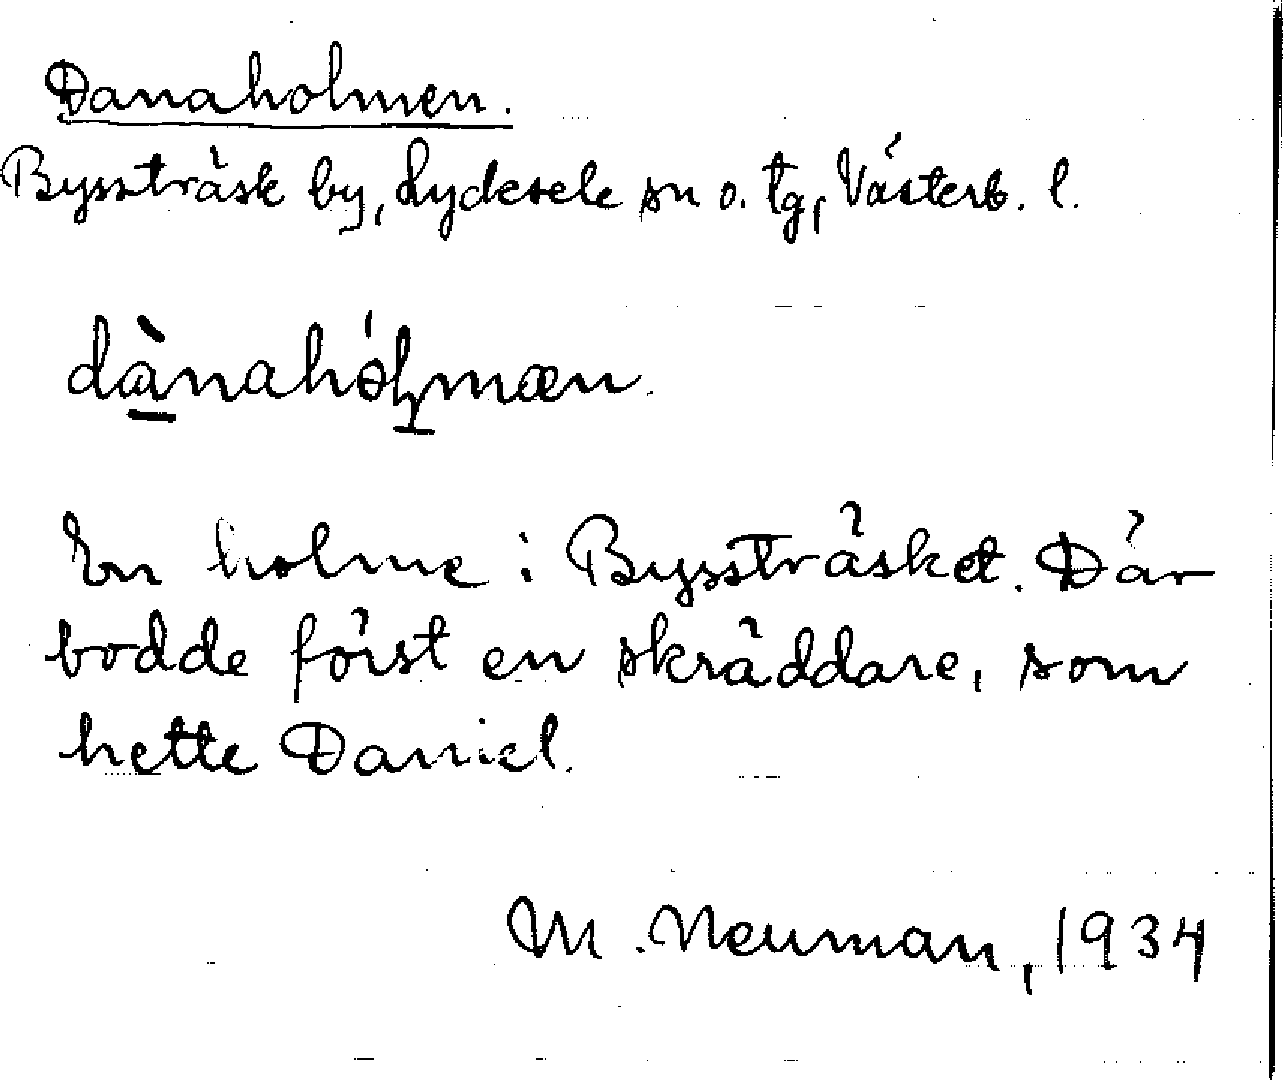 Danaholmen.
Byssträsk by, Lycksele sn o. tg, Västerb. l.
dànahól̥mæn.
En holme i Byssträsket. Där
bodde först en skräddare, som
hette Daniel.
M. Neuman, 1934